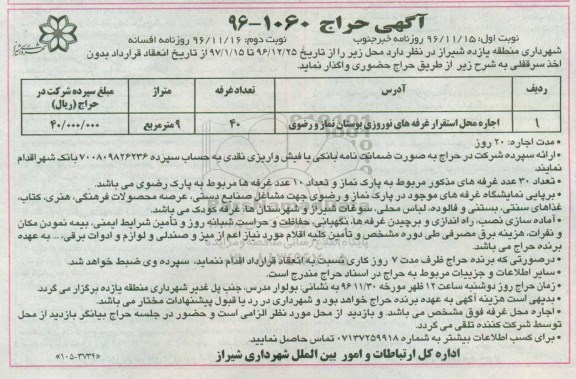 آگهی حراج ۱۰۶۰-۹۶
نوبت اول: ۹۶/۱۱/۱۵ روزنامه خبرجنوب نوبت دوم: ۹۶/۱۱/۱۶ روزنامه افسانه
شهرداری منطقه یازده شیراز در نظر دارد محل زیر را از تاریخ ۹۶/۱۲/۲۵ تا ۹۷/۱/۱۵ از تاریخ انعقاد قرارداد بدون
اخذ سرقفلی به شرح زیر از طریق حراج حضوری واگذار نماید.
ردیف آدرس تعداد غرفه متراژ مبلغ سپرده شرکت در حراج (ریال)
۱ اجاره محل استقرار غرفه های نوروزی بوستان نماز و رضوی ۴۰ ۹ مترمربع ۴۰/۰۰۰/۰۰۰
• مدت اجاره: ۲۰ روز
• ارائه سپرده شرکت در حراج به صورت ضمانت نامه بانکی یا فیش واریزی نقدی به حساب سپرده ۷۰۰۸۰۹۸۲۶۲۳۶ بانک شهر اقدام
نمایند.
• تعداد ۳۰ عدد غرفه های مذکور مربوط به پارک نماز و تعداد ۱۰ عدد غرفه ها مربوط به پارک رضوی می باشد.
• برپایی نمایشگاه غرفه های موجود در پارک نماز و رضوی جهت مشاغل صنایع دستی، عرصه محصولات فرهنگی، هنری، کتاب،
غذاهای سنتی، بستنی و فالوده، لباس محلی، سوغات شیراز و شهرستان ها، غرفه کودک می باشد.
• آماده سازی نصب، راه اندازی و برچیدن غرفه ها، نگهبانی، حفاظت و حراست شبانه روز و تأمین شرایط ایمنی، بیمه نمودن مکان
و نفرات، هزینه برق مصرفی طی دوره مشخص و تأمین کلیه اقلام مورد نیاز اعم از میز و صندلی و لوازم و ادوات برقی... به عهده
برنده حراج می باشد.
• درصورتی که برنده حراج ظرف مدت ۷ روز کاری نسبت به انعقاد قرارداد اقدام ننماید، سپرده وی ضبط خواهد شد.
• سایر اطلاعات و جزییات مربوط به حراج در اسناد حراج مندرج است.
• زمان حراج روز دوشنبه ساعت ۱۲ ظهر مورخه ۹۶/۱۱/۳۰ به نشانی: بولوار مدرس، جنب پل غدیر شهرداری منطقه یازده برگزار می گردد.
• بدیهی است هزینه آگهی به عهده برنده حراج خواهد بود و شهرداری در رد یا قبول پیشنهادات مختار می باشد.
• اجاره محل غرفه فوق مشخص می باشد. و بازدید از محل مورد نظر الزامی است و حضور در جلسه حراج بیانگر بازدید از محل
توسط شرکت کننده تلقی می گردد.
• برای کسب اطلاعات بیشتر به شماره ۰۷۱۳۷۲۵۹۹۱۸ تماس حاصل نمایید.
اداره کل ارتباطات و امور بین الملل شهرداری شیراز
«۱۰۵-۳۷۳۴»